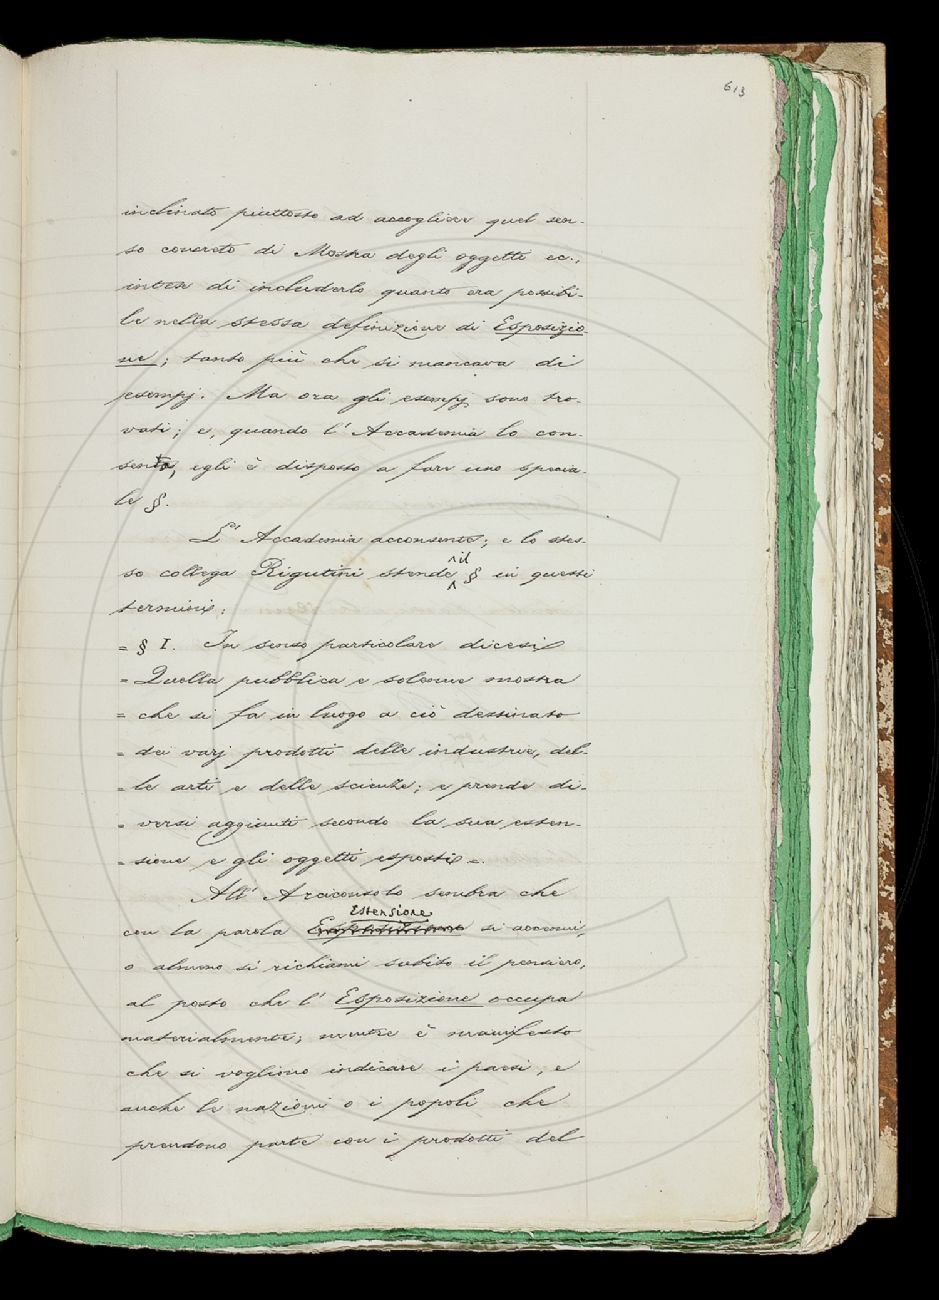 613
inclinato piuttosto ad accogliere quel sen-
so concreto di Mostra degli oggetti ec.,
intese di includerlo quanto era possibi-
le nella stessa definizione di Esposizio-
ne; tanto più che si mancava di
esempj. Ma ora gli esempj sono tro-
vati; e, quando l'Accademia lo con-
senta, egli è disposto a fare uno specia-
le §.
L'Accademia acconsente; e lo stes-
so collega Rigutini stende il § in questi
termini:
= § I. In senso particolare dicesi
= Quella pubblica e solenne mostra
= che si fa in luogo a ciò destinato
= dei varj prodotti delle industrie, del-
= le arti e delle scienze; e prende di-
= versi aggiunti secondo la sua esten-
= sione e gli oggetti esposti =.
All'Arciconsolo sembra che
con la parola Estensione si accenni,
o almeno si richiami subito il pensiero,
al posto che l'Esposizione occupa
materialmente; mentre è manifesto
che si vogliono indicare i paesi, e
anche le nazioni o i popoli che
prendono parte con i prodotti del